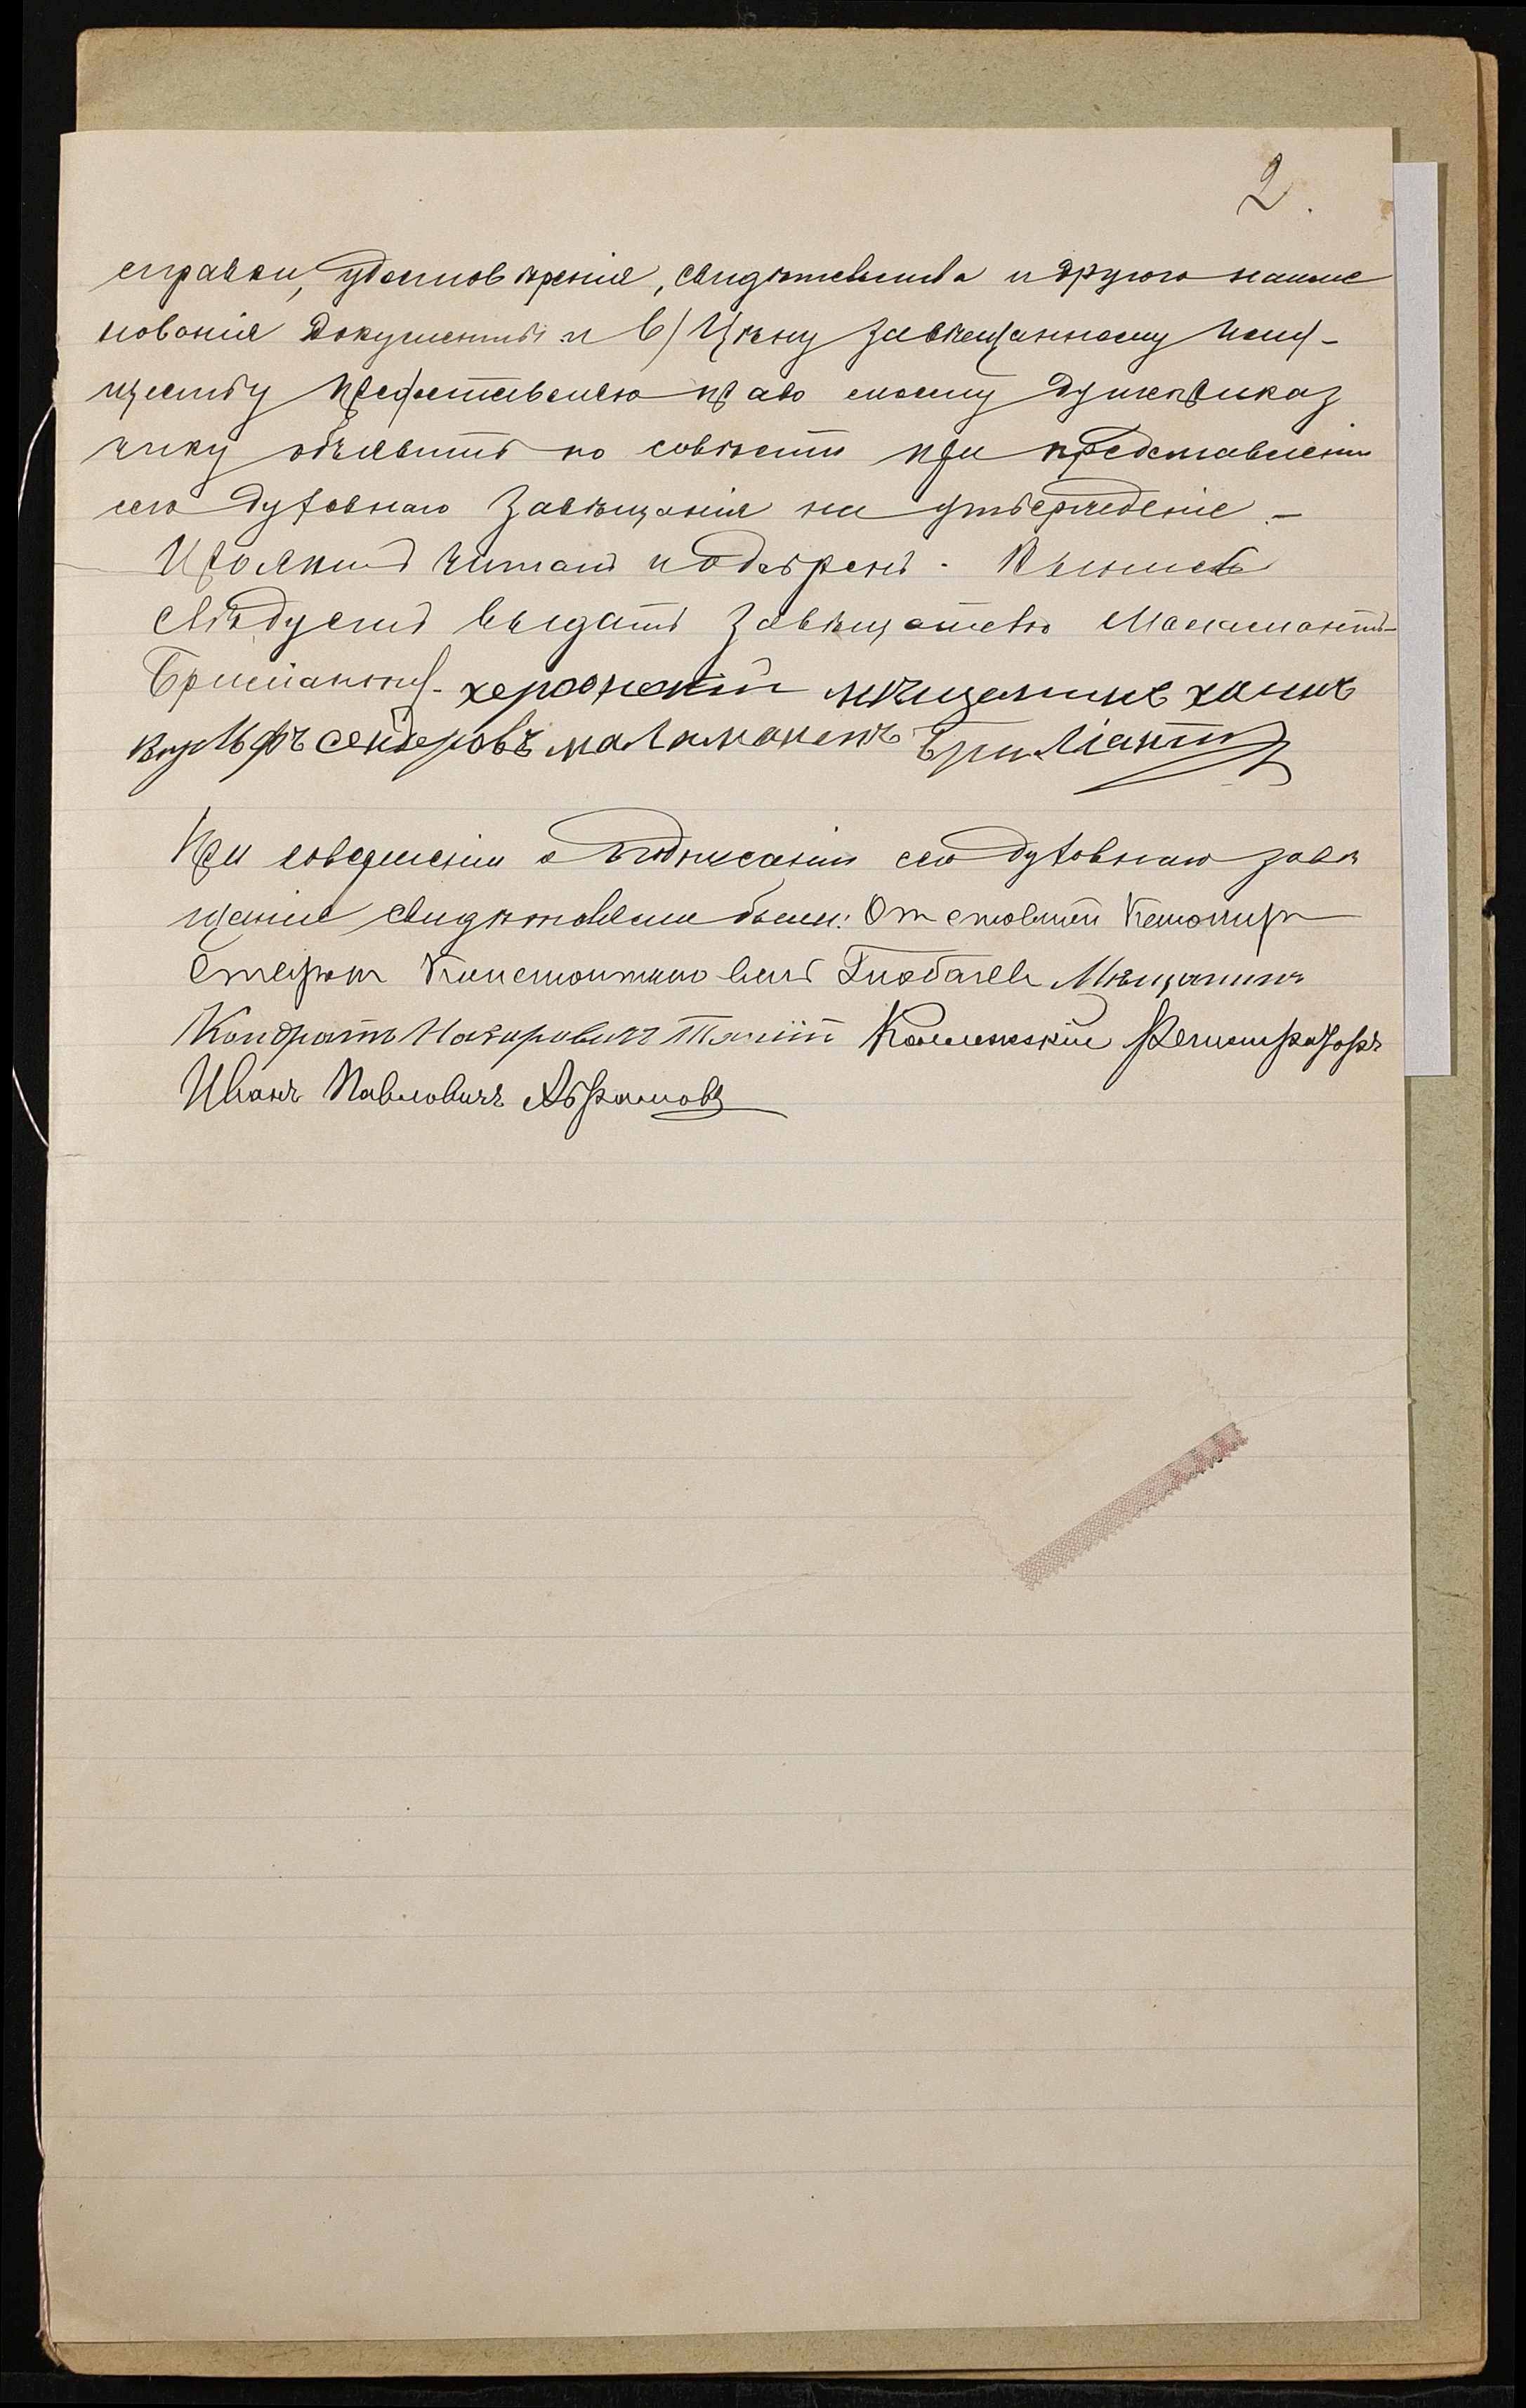 2.
справки, удостовѣренія, свидѣтельства и другого наиме
нованія документы и в) Цѣну завѣщанному иму-
ществу предоставляю право моему душеприказ
чику объявить по совѣсти при представленіи
сего духовнаго завѣщанія на утвержденіе. –
Проектъ читалъ и одобрилъ. Выпись
слѣдуетъ выдать завѣщателю
Бриліанту. херсонскій мѣщанинъ хаимъ
вульфъ сендеровъ Бриліантъ
При совершеніи и подписаніи сего духовнаго завѣ
щанія свидѣтелями были: Отставной
Константиновичъ Мѣщанинъ
Кондратъ Назаровичъ Коллежскій Регистраторъ
Иванъ Павловичъ Абрамовъ